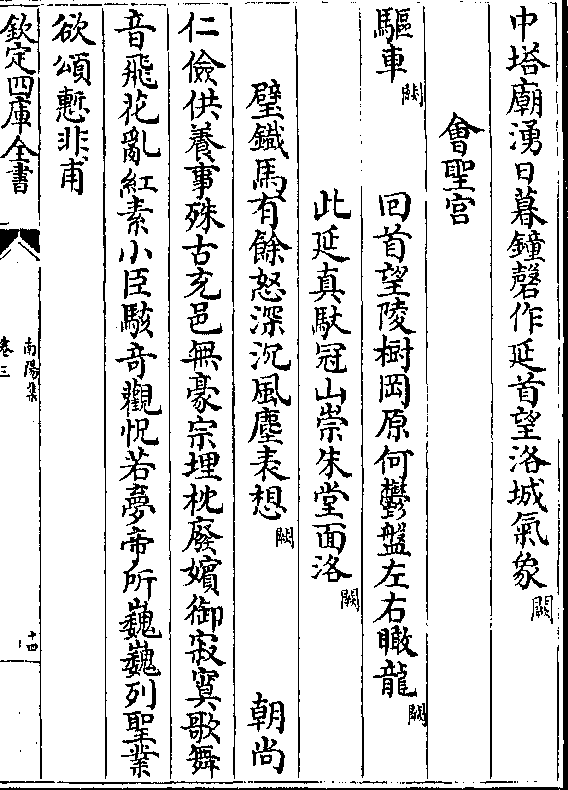 中塔廟湧日暮鐘磬作延首望洛城氣象闕
會聖宫
驅車闕 回首望陵樹岡原何鬱盤左右瞰龍闕
此延真馭冠山崇朱堂面洛闕
壁鐡馬有餘怒深沉風塵表想闕 朝尚
仁儉供養事殊古充邑無豪宗埋枕廢嬪御寂寞歌舞
音飛花亂紅素小臣駭奇觀怳若夢帝所巍巍列聖業
欲頌慙非甫
欽定四庫全書
南陽集
卷三
十四